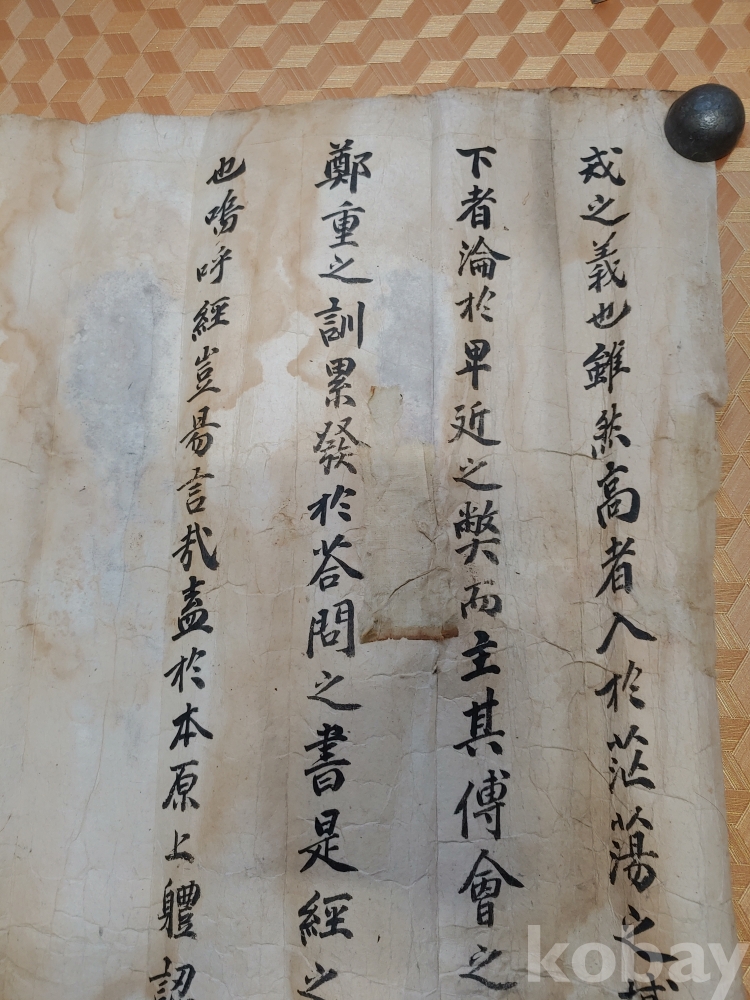 戒之義也雖然高者入於茫蕩之域
下者淪於卑近之獘而主其傅會之
鄭重之訓累發於荅問之書是經之
也嗚呼經豈易言哉盖於本原上軆認
kobay